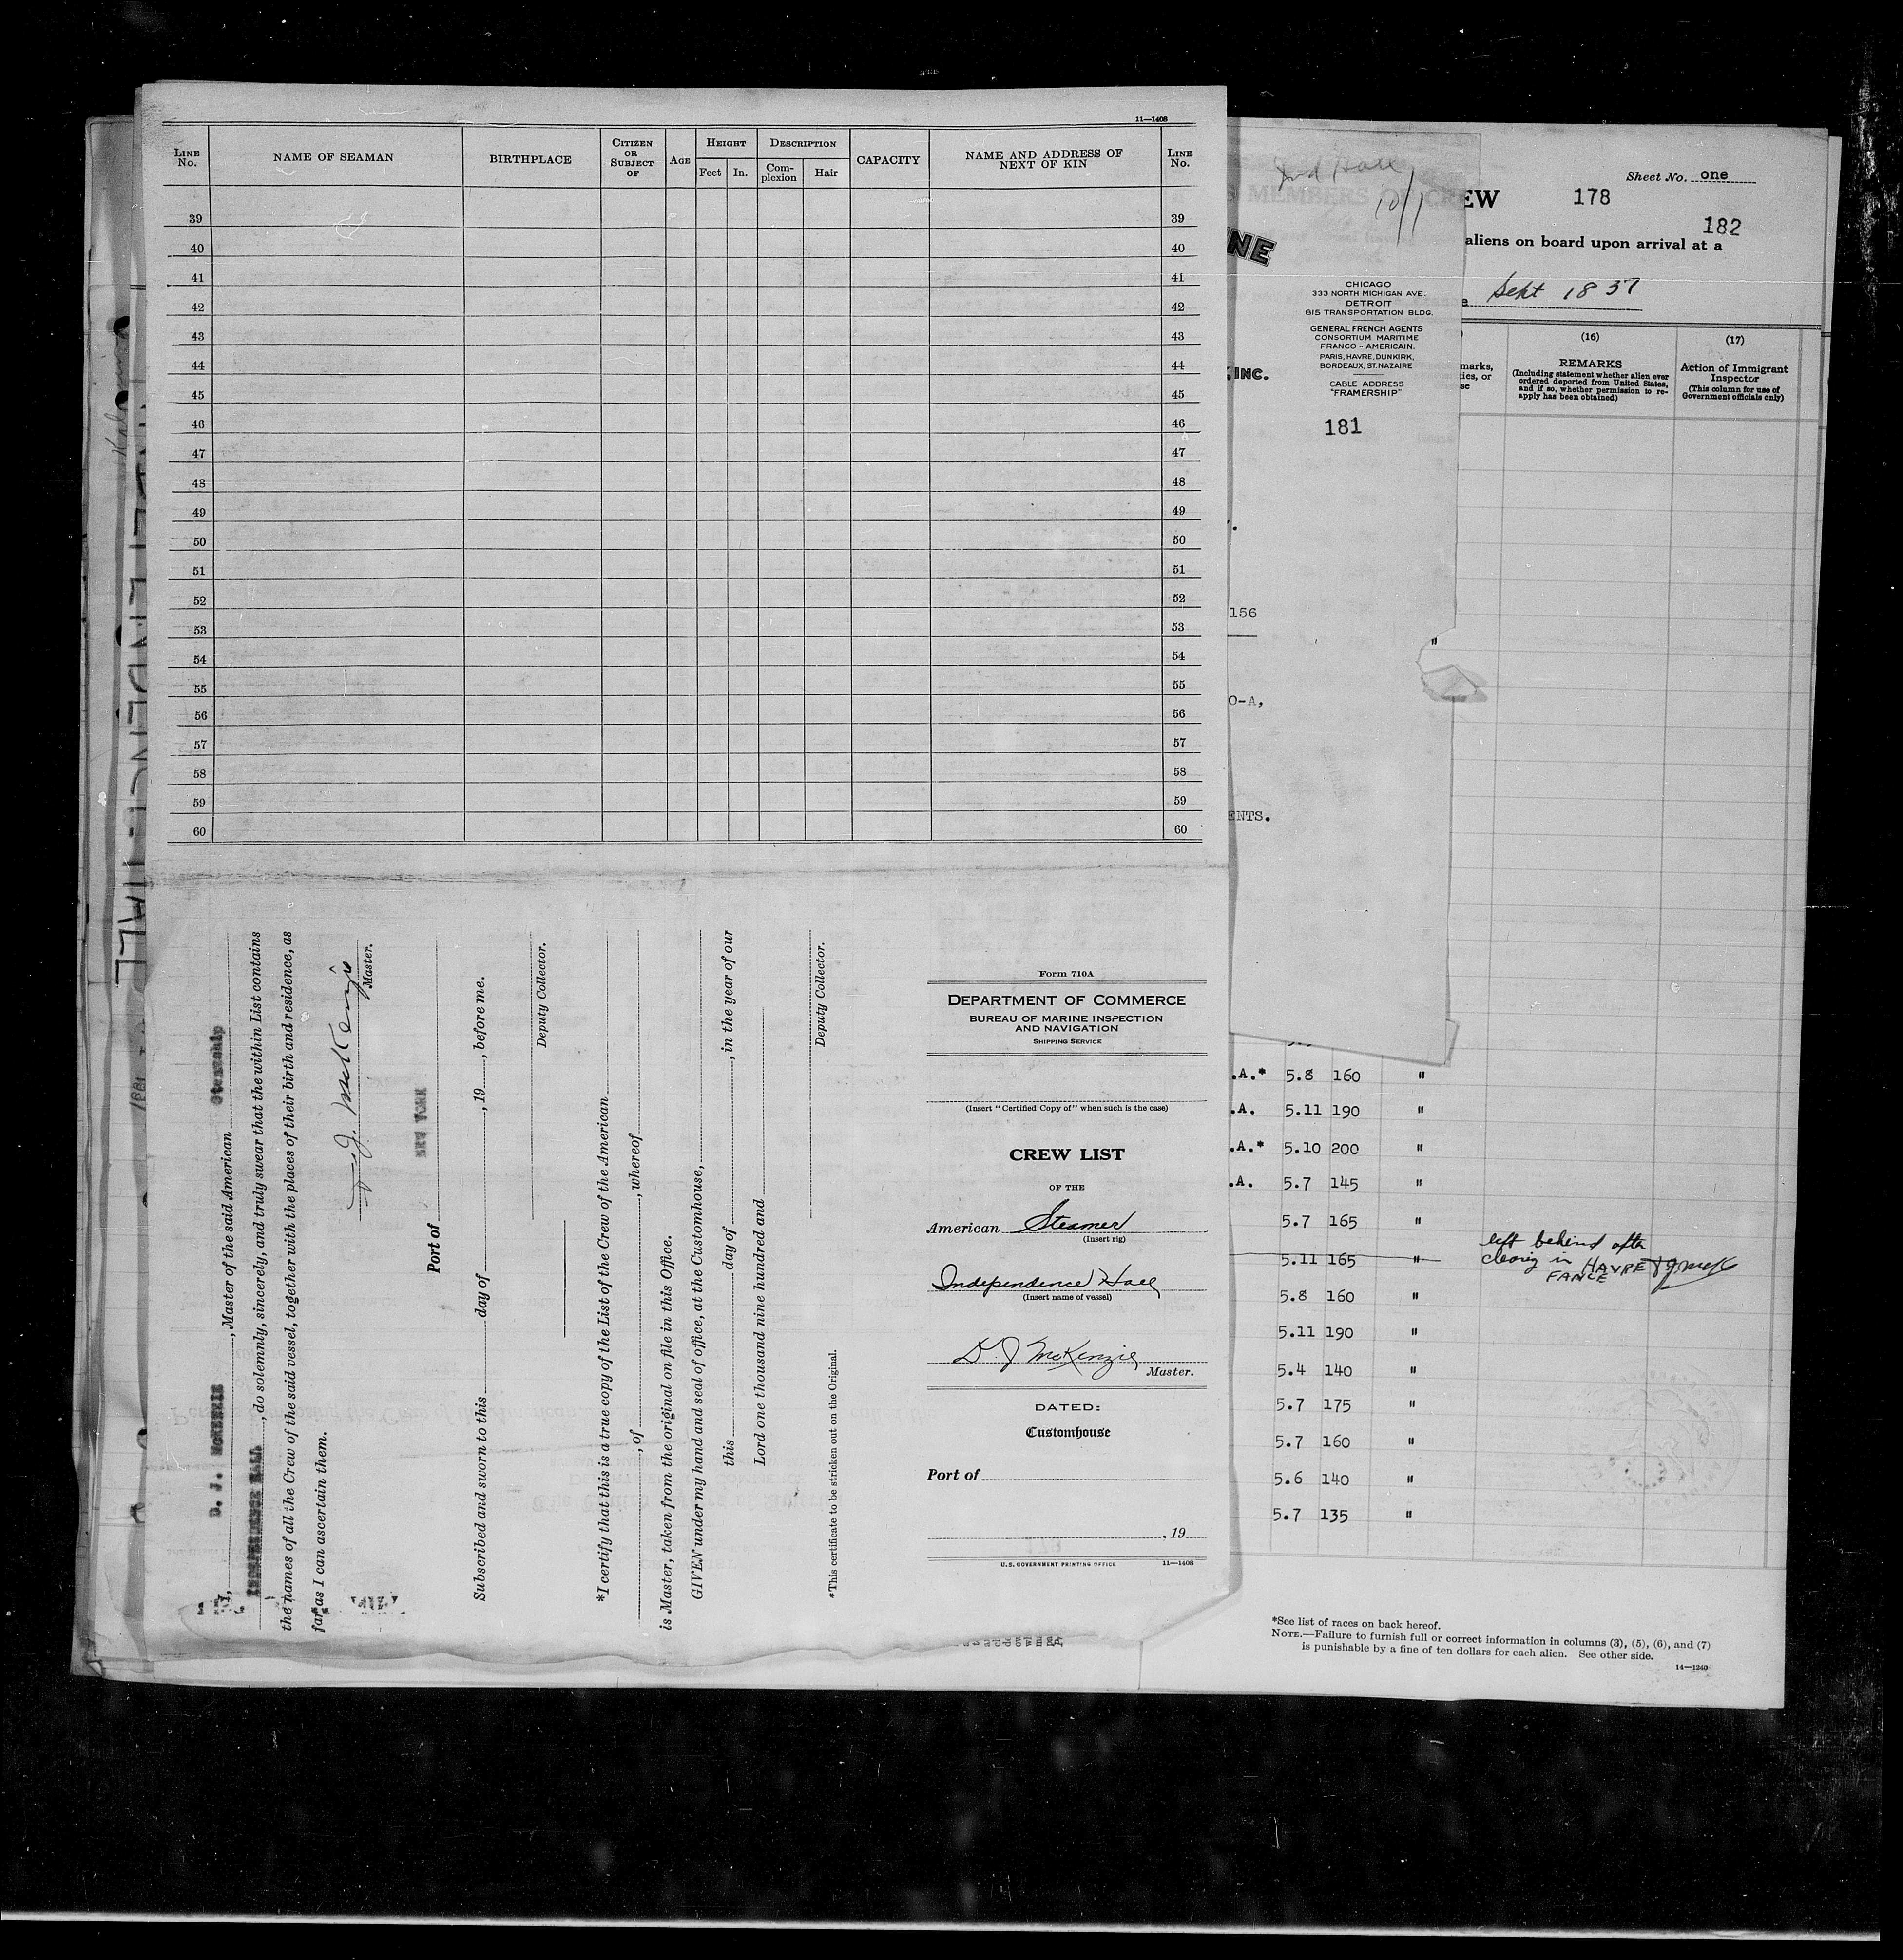 11—1408
LINE No.
NAME OF SEAMAN
BIRTHPLACE
CITIZEN OR SUBJECT OF
AGE
HEIGHT
Feet
In.
DESCRIPTION
Complexion
Hair
CAPACITY
NAME AND ADDRESS OF NEXT OF KIN
LINE No.
39 39
40 40
41 41
42 42
43 43
44 44
45 45
46 46
47 47
48 48
49 49
50 50
51 51
52 52
53 53
54 54
55 55
56 56
57 57
58 58
59 59
60 60
I, D. J. McKENZIE, Master of the said American Steamship
INDEPENDENCE HALL, do solemnly, sincerely, and truly swear that the within List contains
the names of all the Crew of the said vessel, together with the places of their birth and residence, as
far as I can ascertain them.
D. J. McKenzie
Master.
Port of NEW YORK
Subscribed and sworn to this day of , 19 , before me.
Deputy Collector.
*I certify that this is a true copy of the List of the Crew of the American
, of , whereof
is Master, taken from the original on file in this Office.
GIVEN under my hand and seal of office, at the Customhouse,
this day of , in the year of our
Lord one thousand nine hundred and
Deputy Collector.
*This certificate to be stricken out on the Original.
Form 710A
DEPARTMENT OF COMMERCE
BUREAU OF MARINE INSPECTION
AND NAVIGATION
SHIPPING SERVICE
(Insert "Certified Copy of" when such is the case)
CREW LIST
OF THE
American Steamer
(Insert rig)
Independence Hall
(Insert name of vessel)
D. J McKenzie
Master.
DATED:
Customhouse
Port of
, 19
U.S. GOVERNMENT PRINTING OFFICE 11—1408
Ind Hall
10/1
S MEMBERS OF CRE
NE
CHICAGO
333 NORTH MICHIGAN AVE.
DETROIT
815 TRANSPORTATION BLDG.
GENERAL FRENCH AGENTS
CONSORTIUM MARITIME
FRANCO-AMERICAIN.
PARIS, HAVRE, DUNKIRK,
BORDEAUX, ST. NAZAIRE
CABLE ADDRESS
"FRAMERSHIP"
, INC.
181
156
O-A,
ENTS.
Sheet No. one
EW 178
182
aliens on board upon arrival at a
Sept 18 37
marks,
ties, or
(16)
REMARKS
(Including statement whether alien ever
ordered deported from United States,
and if so, whether permission to re-
apply has been obtained)
(17)
Action of Immigrant
Inspector
(This column for use of
Government officials only)
"
.A.* 5.8 160 "
.A. 5.11 190 "
.A.* 5.10 200 "
.A. 5.7 145 "
5.7 165 "
5.11 165 " left behind after
clearing in HAVRE
FANCE
5.8 160 "
5.11 190 "
5.4 140 "
5.7 175 "
5.7 160 "
5.6 140 "
5.7 135 "
*See list of races on back hereof.
NOTE.—Failure to furnish full or correct information in columns (3), (5), (6), and (7)
is punishable by a fine of ten dollars for each alien. See other side.
14—1240